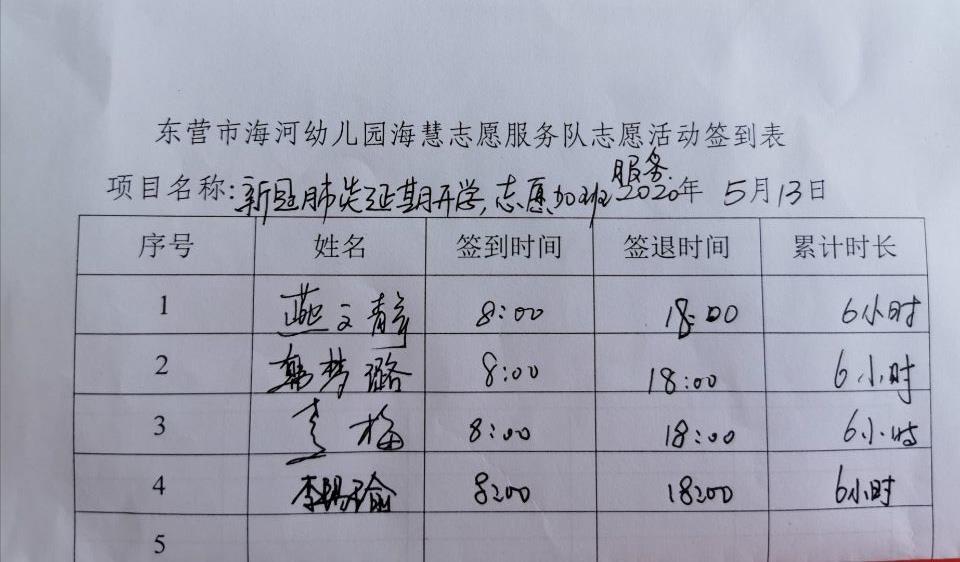 东营市海河幼儿园海慧志愿服务队志愿活动签到表
服务
项目名称:新冠肺炎延期开学,志愿加班2020年 5月13日
序号 姓名 签到时间 签退时间 累计时长
1 燕文静 8:00 18:00 6小时
2 韩梦璐 8:00 18:00 6小时
3 梅 8:00 18:00 6小时
4 李 瑜 8:00 18:00 6小时
5